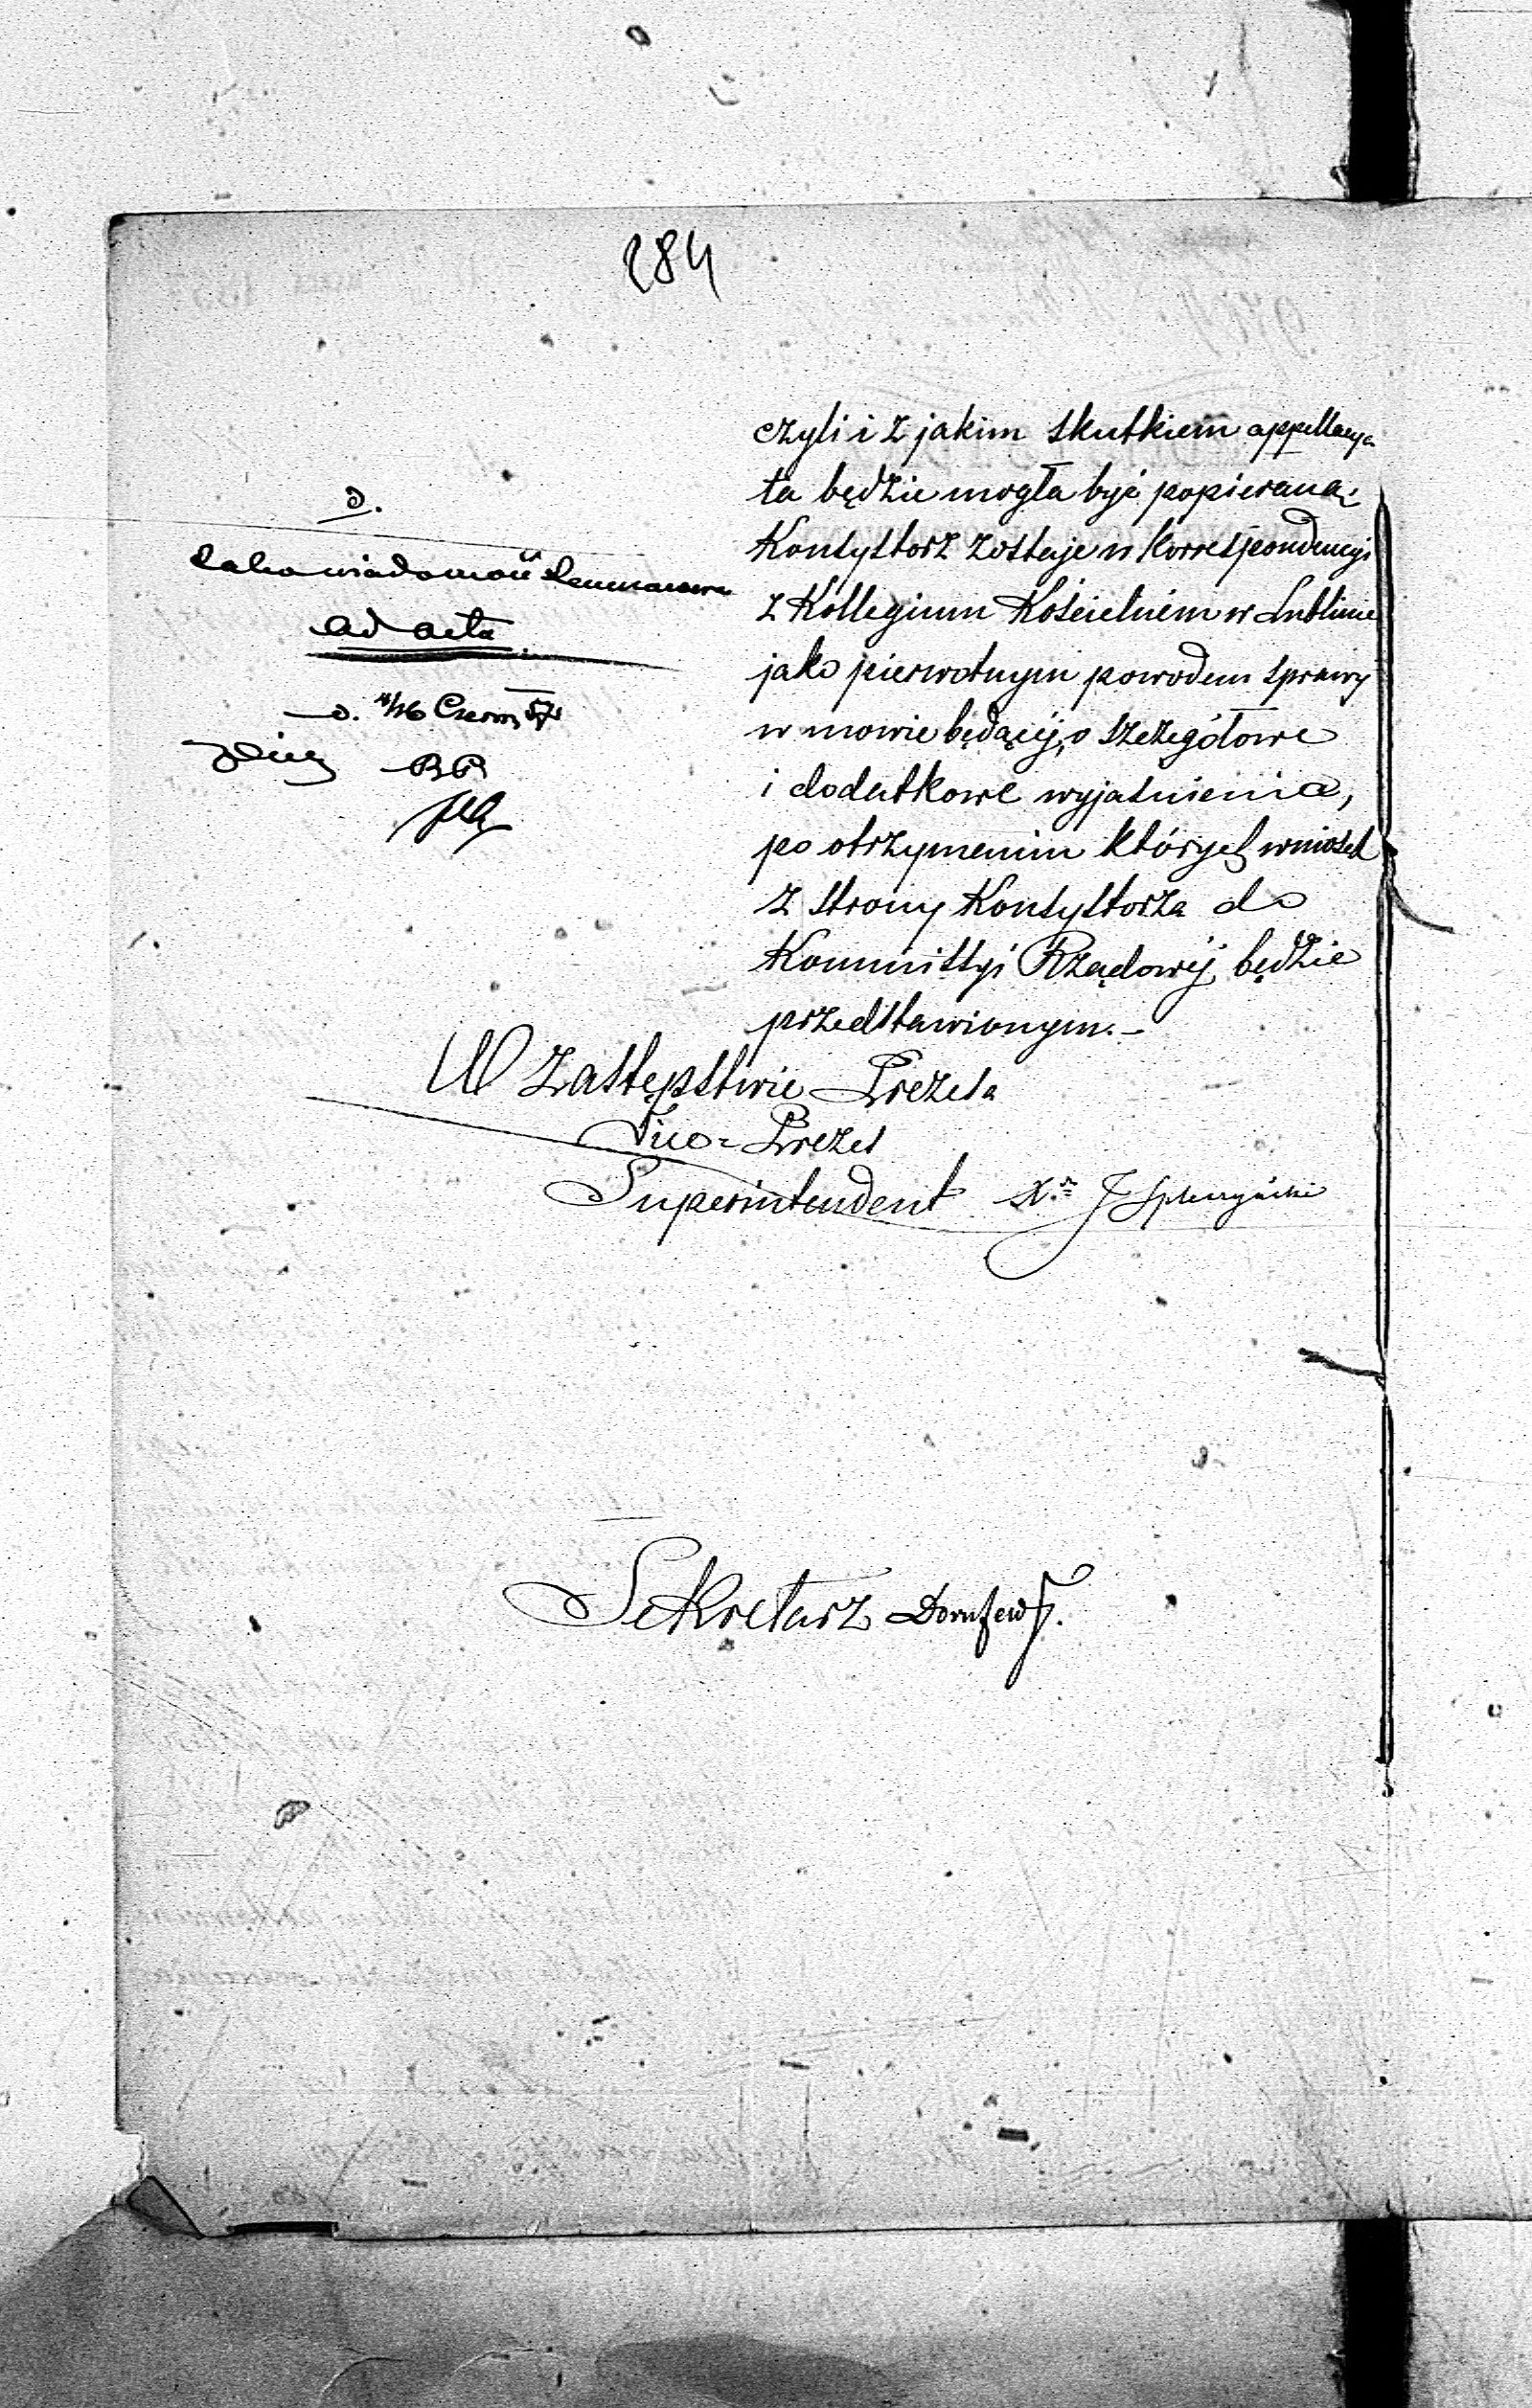 284
czyli i z jakim skutkiem appellacya
ta będzie mogła być popieraną;
Konsystorz zostaje w korrespondencyi
z Kollegium Kościelném w Lublinie
jako pierwotnym powodem sprawy
w mowie będącéj, o szczegółowe
i dodatkowe wyjaśnienia,
po otrzymaniu których wniosek
z strony Konsystorza do
Kommissyi Rządowéj będzie
przedstawionym.–
W Zastępstwie Prezesa
Vice-Prezes
Superintendent Xs J Spleszyński
Sekretarz
D.
ad acta
D. 4/16 Czerw 57